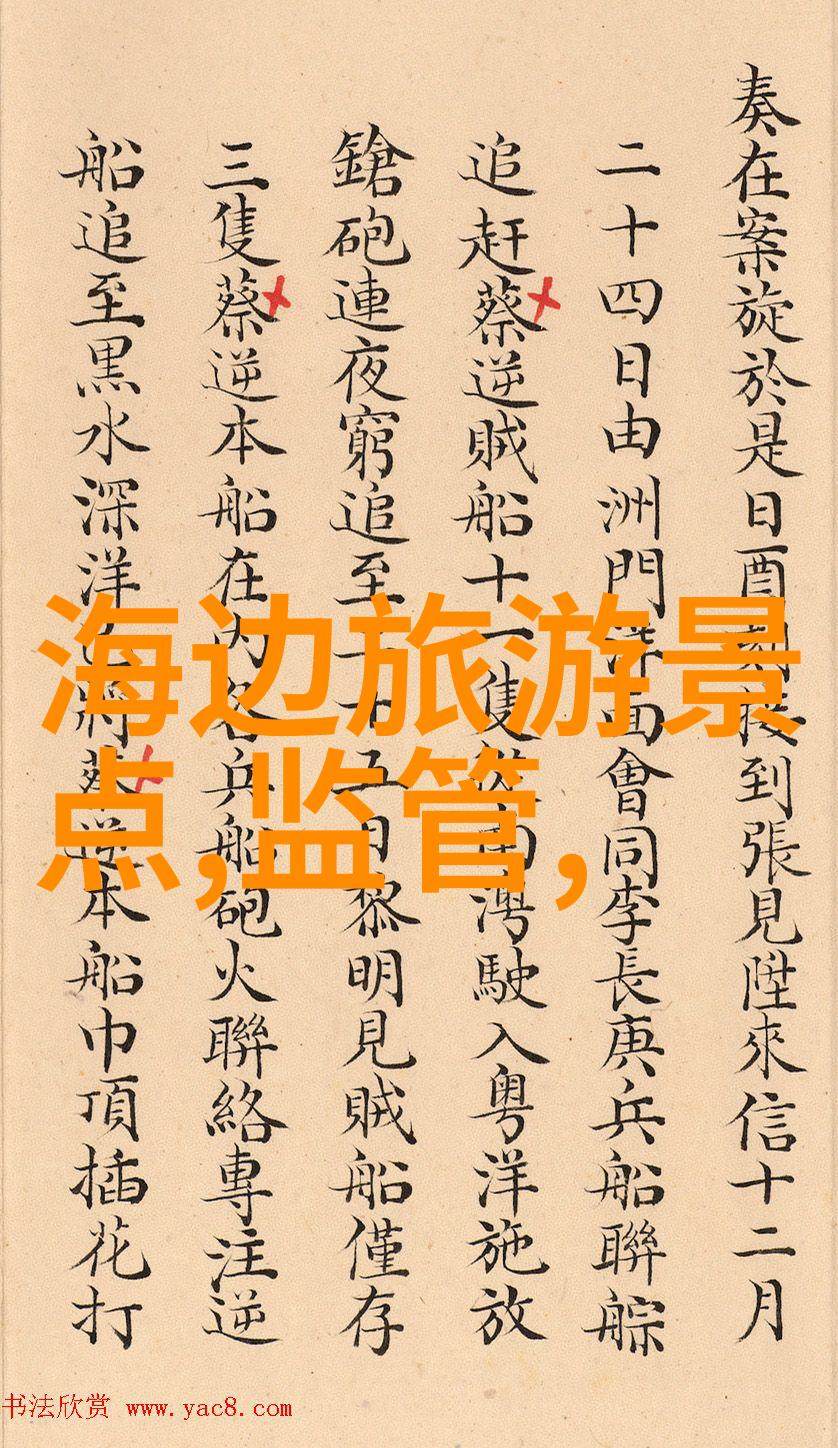 奏在案旋於是日酉刻接到張見陞來信十二月
二十四日由洲門深面會同李長庚兵船聯䑸
追赶蔡逆賊船十一隻從南灣駛入粤洋施放
鎗砲連夜窮追至二十五日黎明見賊船僅存
三隻蔡逆本船在內各兵船砲火聯絡專注逆
船追至黒水深洋已將蔡逆本船巾頂插花打
海边旅游景
点,监管,
书法欣赏 www.yac8.com